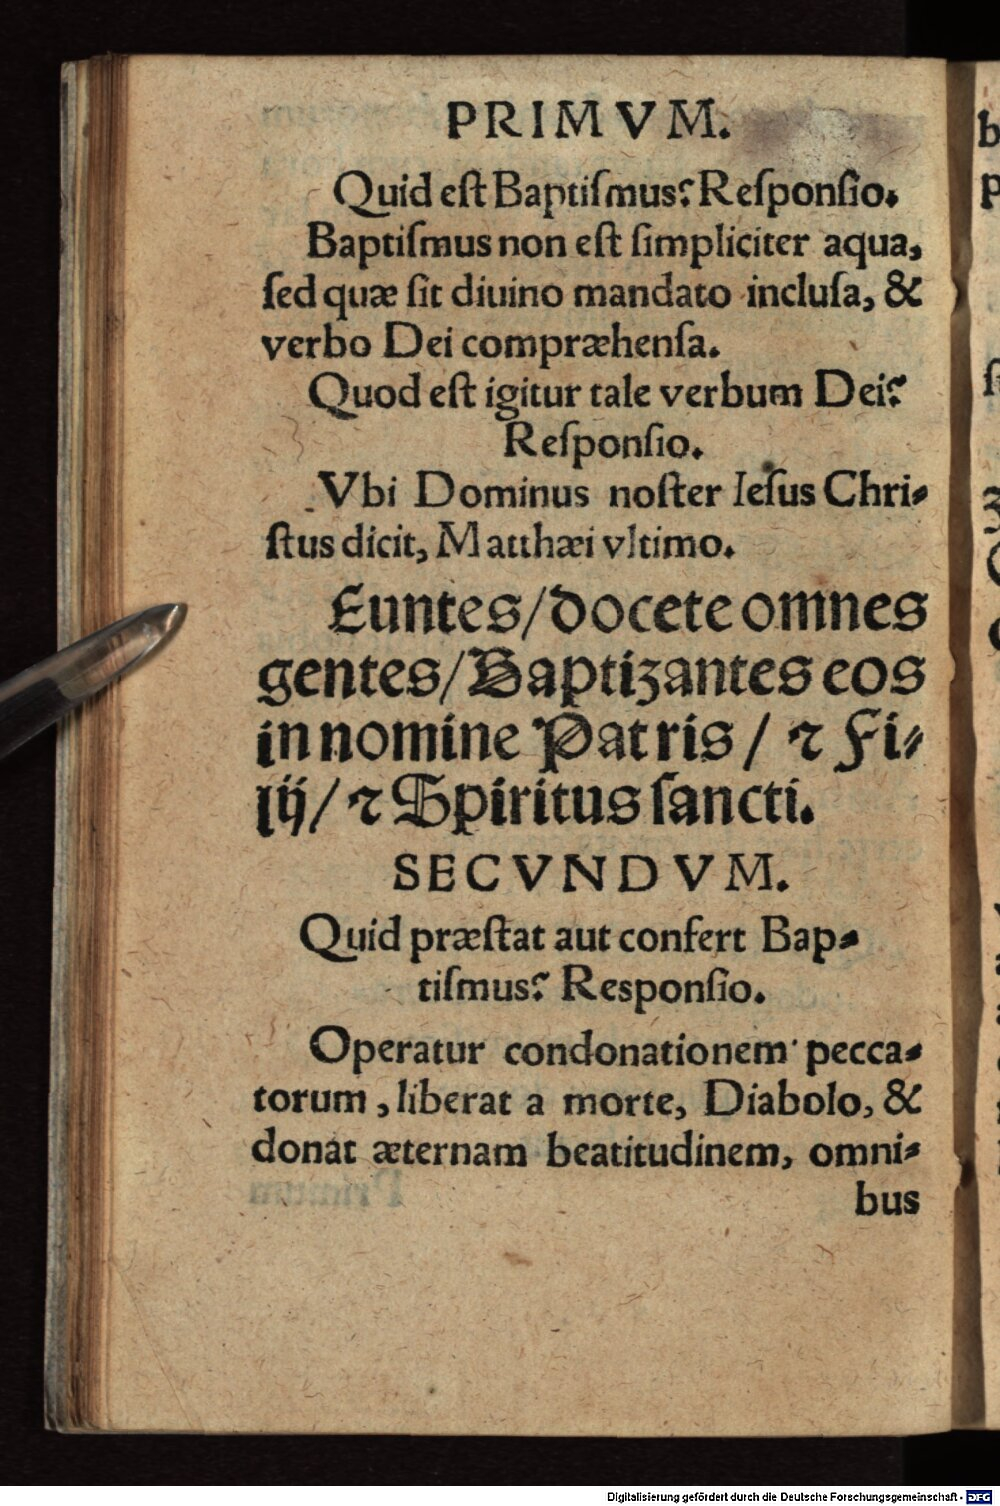 PRIMVM.
Quid eſt Baptiſmus? Reſponſio.
Baptiſmus non eſt ſimpliciter aqua,
ſed quæ ſit diuino mandato incluſa, &
verbo Dei compræhenſa.
Quod eſt igitur tale verbum Dei?
Reſponſio.
Vbi Dominus noſter Ieſus Chri-
ſtus dicit, Matthæi vltimo.
Euntes/docete omnes
gentes/Baptizantes eos
in nomine Patris / ⁊ Fi-
lij/ ⁊ Spiritus ſancti.
SECVNDVM.
Quid præſtat aut confert Bap-
tiſmus? Responſio.
Operatur condonationem pecca-
torum, liberat a morte, Diabolo, &
donat æternam beatitudinem, omni-
bus
Digitalisierung gefördert durch die Deutsche Forschungsgemeinschaft - DFG